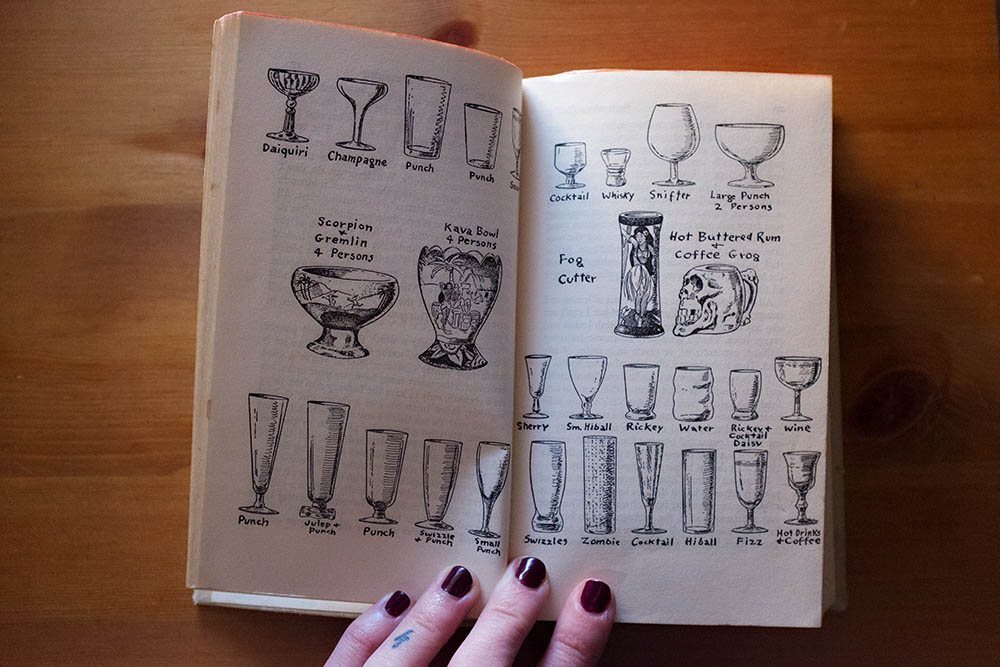 Daiquiri
Champagne
Punch
Punch
Scorpion
+
Gremlin
4 Persons
Kava Bowl
4 Persons
Punch
Julep +
Punch
Punch
Swizzle
+ Punch
Small
Punch
Cocktail
Whisky
Snifter
Large Punch
2 Persons
Fog
Cutter
Hot Buttered Rum
+
Coffee Grog
Sherry
Sm. Hiball
Rickey
Water
Rickey +
Cocktail
Daisy
Wine
Swizzles
Zombie
Cocktail
Hiball
Fizz
Hot Drinks
+ Coffee